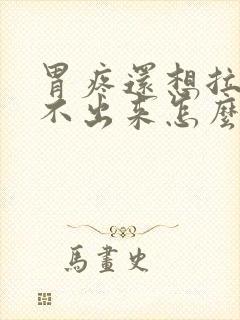 胃疼還想拉
不出来怎麼
馬畫史